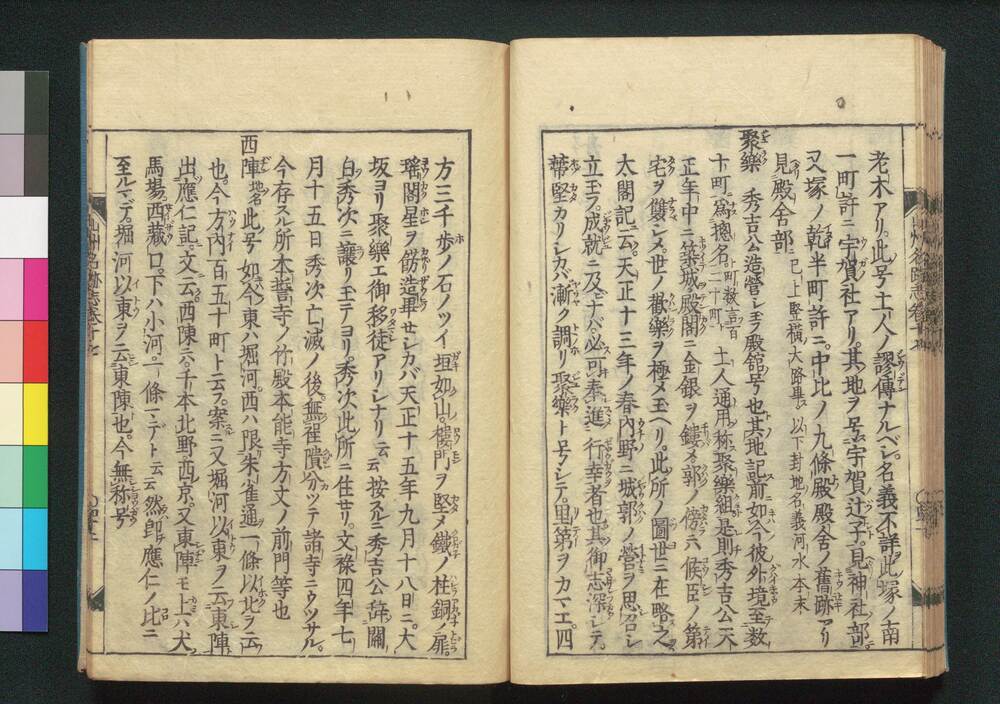 老木アリ。此号土人ノ謬傳ナルベシ。名義不詳此塚ノ南
一町許ニ宇賀社アリ。其地ヲ号宇賀辻子。見神社部
又塚ノ乾半町許ニ。中比ノ九條殿殿舎ノ舊跡アリ
見殿舎部 已上竪横大路畢以下封地名義河水本末
聚樂 秀吉公造營シ玉フ殿舘号也其地記前如今彼外境至数
十町。爲揔名 町数言百二十町ト 土人通用称聚樂組是則秀吉公天
正年中ニ築城殿閣ニ金銀ヲ鏤メ郭ノ傍ニ候臣ノ第
宅ヲ雙シメ。世ノ歡樂ヲ極メ玉ヘリ。此所ノ圖世ニ在略之
太閤記云。天正十三年ノ春内野ニ城郭ノ營ヲ思召シ
立玉フ。成就ニ及ナバ。必可奉進行幸者也其御志深シテ。
華堅カリシカバ漸ク調リ。聚樂ト号シテ。里第ヲカマエ。四
方三千歩ノ石ノツイ垣如山。樓門ヲ堅メ鐵ノ柱銅ノ扉。
瑶閣星ヲ餝造畢セシカバ天正十五年九月十八日ニ。大
坂ヨリ聚樂エ御移徙アリシナリ云云 按スルニ秀吉公辞關
白秀次ニ讓リ玉テヨリ。秀次此所ニ住せリ。文禄四年七
月十五日秀次亡滅ノ後。無程隤分ツテ諸寺ニウツサル。
今存スル所本誓寺ノ竹殿本能寺方丈ノ前門等也
西陣 地名 此号如今東ハ堀河。西ハ限朱雀通一條以北ヲ云
也。今方内百五十町ト云フ。案ニ又堀河以東ヲ云東陣
出應仁記。文云西陳六。千本北野西京。又東陣モ上六犬
馬場。西藏口。下ハ小河。一條マデト云云 然卽應仁ノ比ニ
至ルマデ。堀河以東ヲ云東陳也。今無称号
山州名跡志巻十七